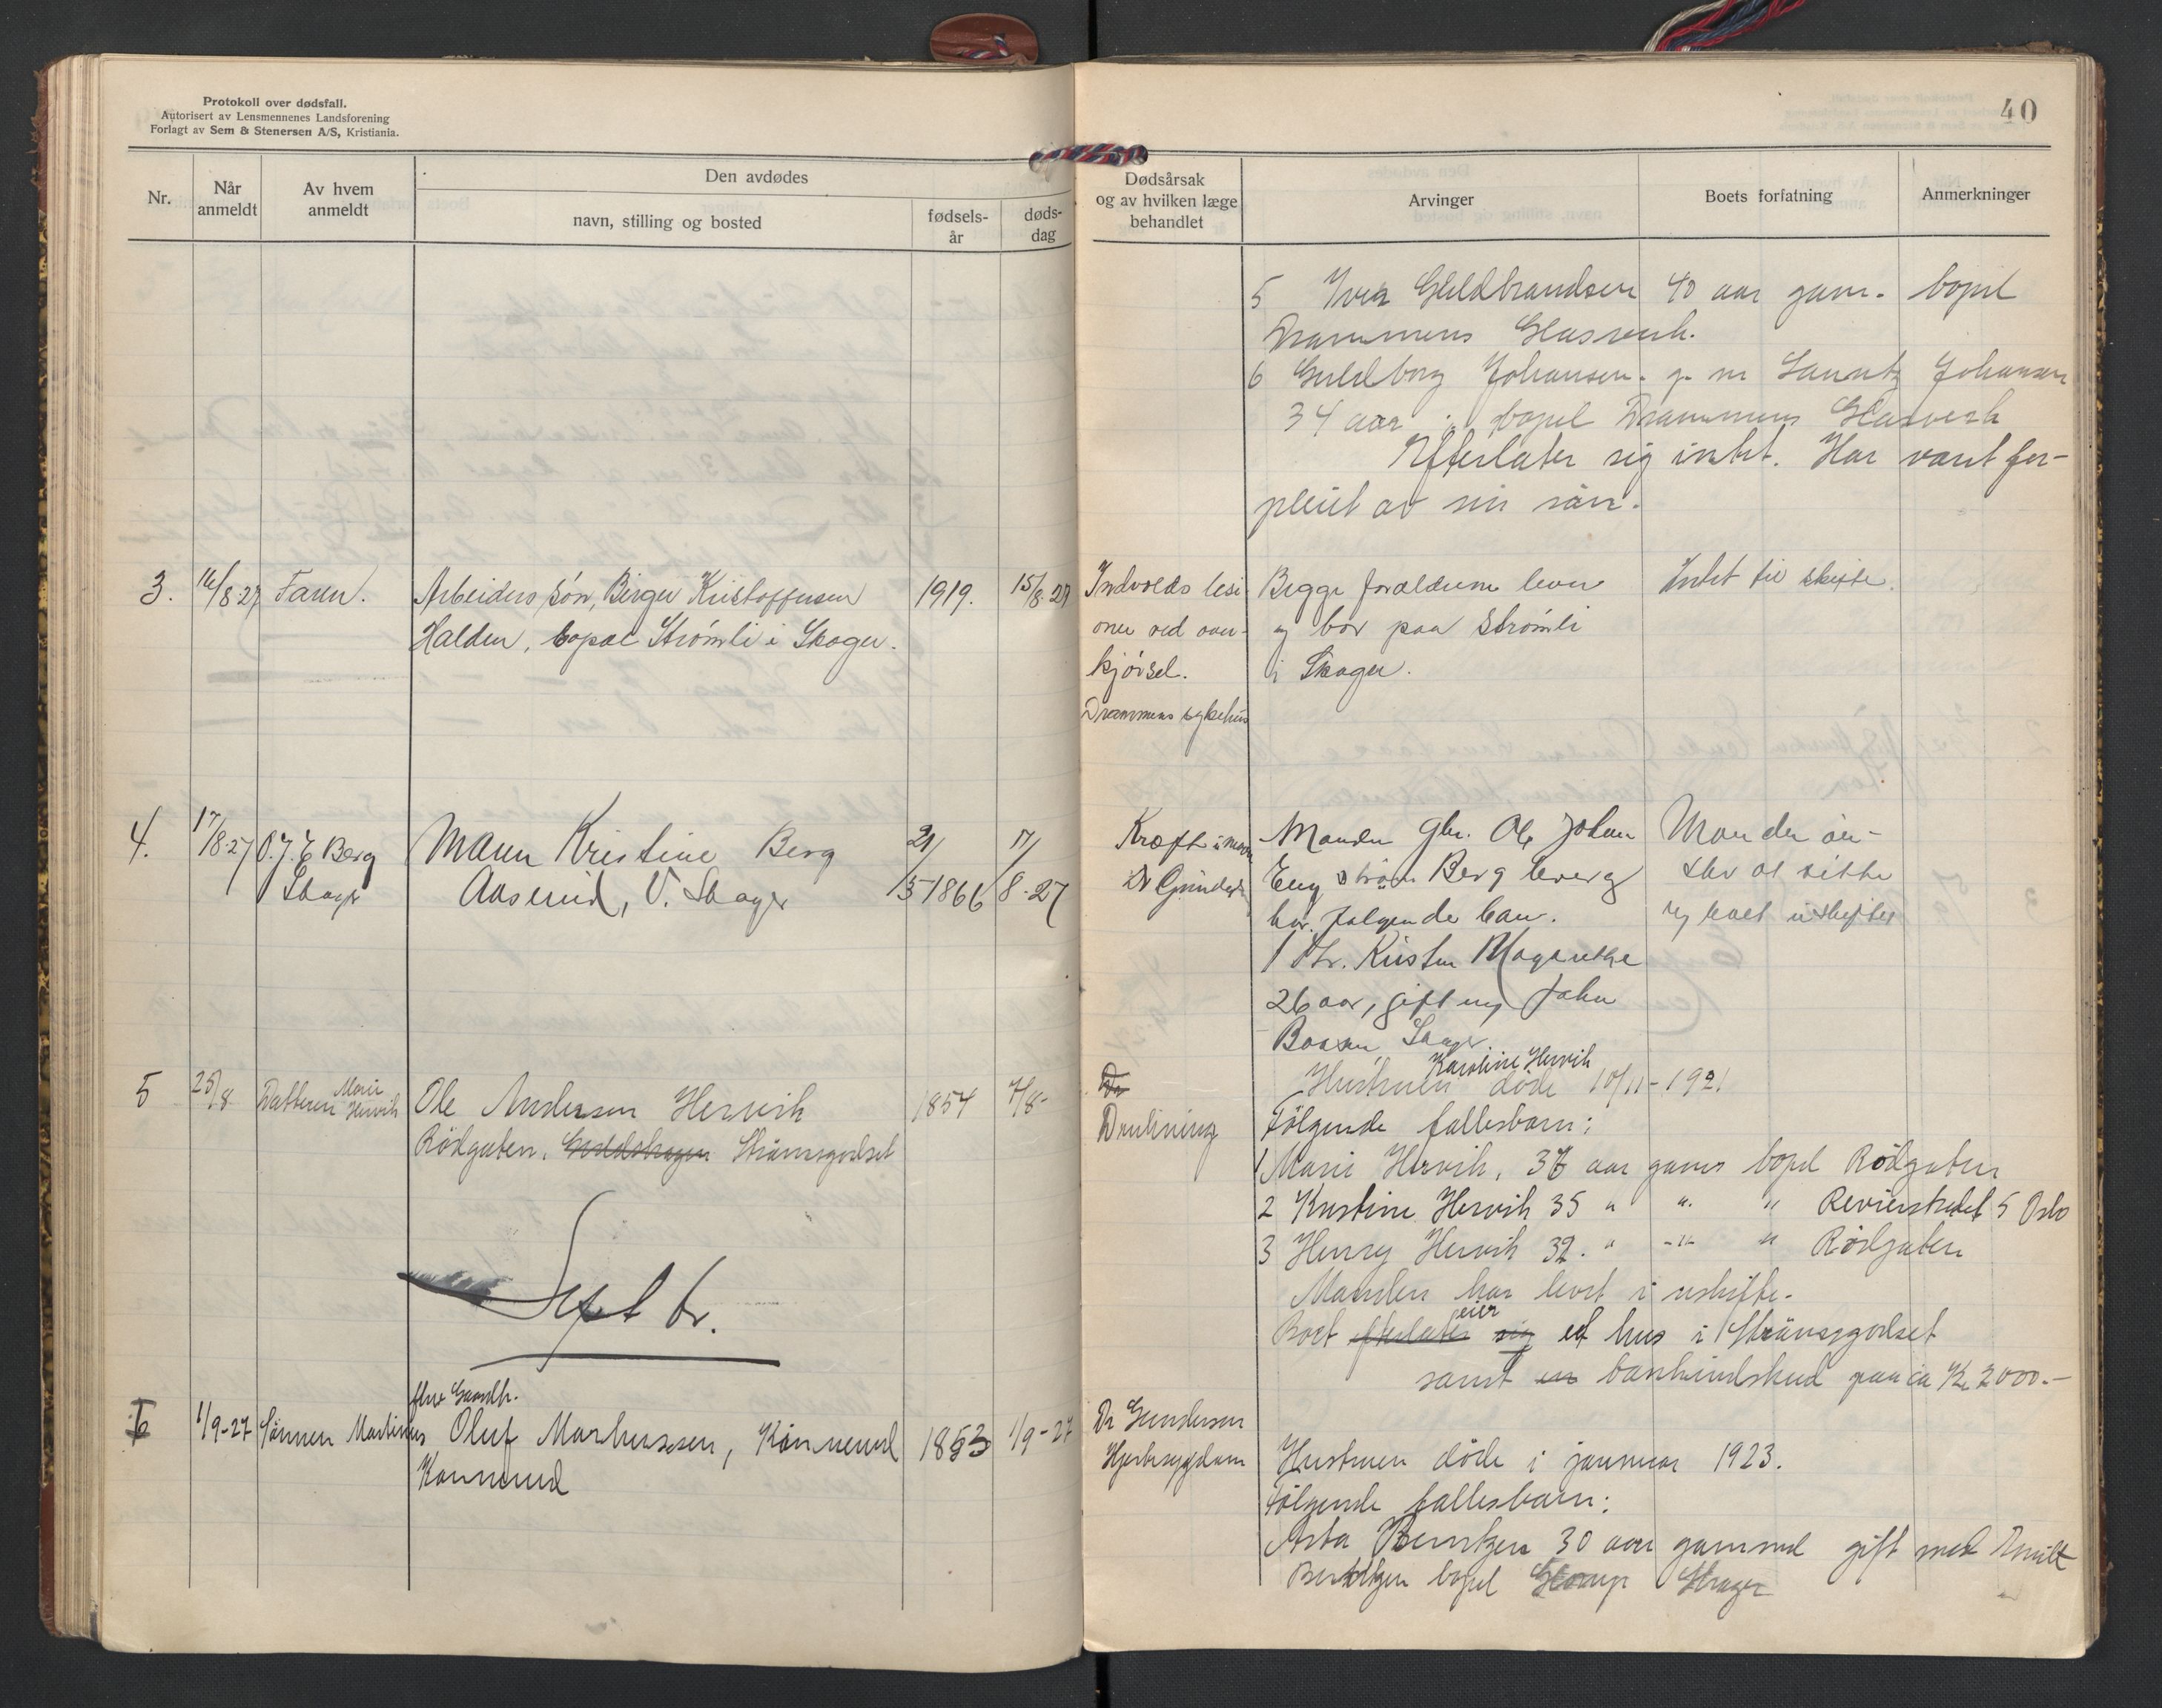 Protokoll over dødsfall.
Autorisert av Lensmennenes Landsforening
Forlagt av Sem & Stenersen A/S, Kristiania.
Nr.
Når anmeldt
Av hvem anmeldt
Den avdødes
navn, stilling og bosted
fødsels-år
døds-dag
3. 16/8-27 Faren. Arbeiders søn, Birger Kristoffersen 1919. 15/8-27
Halden, bopæl Strömli i Skoger.
4. 17/8-27 O.J.E Berg Maren Kristine Berg 21/5 1866 17/8-27
Skoger Aaserud, V. Skoger
5 25/8. Datteren Marie Hervik Ole Andersen Hervik 1854 7/8-
Rödgaten. Strømsgodset
Septbr.
fhv Gaardbr.
6 1/9-27 Sönnen Martinus Oluf Markussen, Könnerud 1853 1/9-27
Konnerud
40
Dødsårsak
og av hvilken læge
behandlet
Arvinger
Boets forfatning
Anmerkninger
5 Iver Guldbrandsen 40 aar gam. bopel
Drammens Glasverk.
6 Guldborg Johansen. g. m Johansen
34 aar bopel Drammens Glasverk
Efterlater sig intet. Har vært for-
pleiet av sin sön.
Indvolds lesi Begge forældrene lever Intet til skifte.
oner ved over- og bor paa Strömli
kjörsel. i Skoger.
Drammens sykehus
Kræft i mave Manden Gbr. Ole Johan Manden ön-
Dr Gundersen Engström Berg lever og sker at sitte
har følgende barn. i uskiftet
1 Dtr. Kirsten Magarethe
26 aar, gift m/ Johan
Skoger
Karoline Hervik
Hustruen döde 10/11-1921
Drukning Fölgende fællesbarn:
1 Marie Hervik, 37 aar gamm bopel Rödgaten
2 Kristine Hervik 35 " " " Revierstredet 5 Oslo
3 Henry Hervik 32. " -"- " Rödgaten
Manden har levet i uskifte.
eier
Boet efterlater sig et hus i Strömsgodset
samt en bankindskud paa ca Kr 2000.-
Dr Gundersen
Hjertesygdom Hustruen döde i januar 1923.
Fölgende fællesbarn:
Asta Berntzen 30 aar gammel gift med Emil
Berntzen bopel Skoger